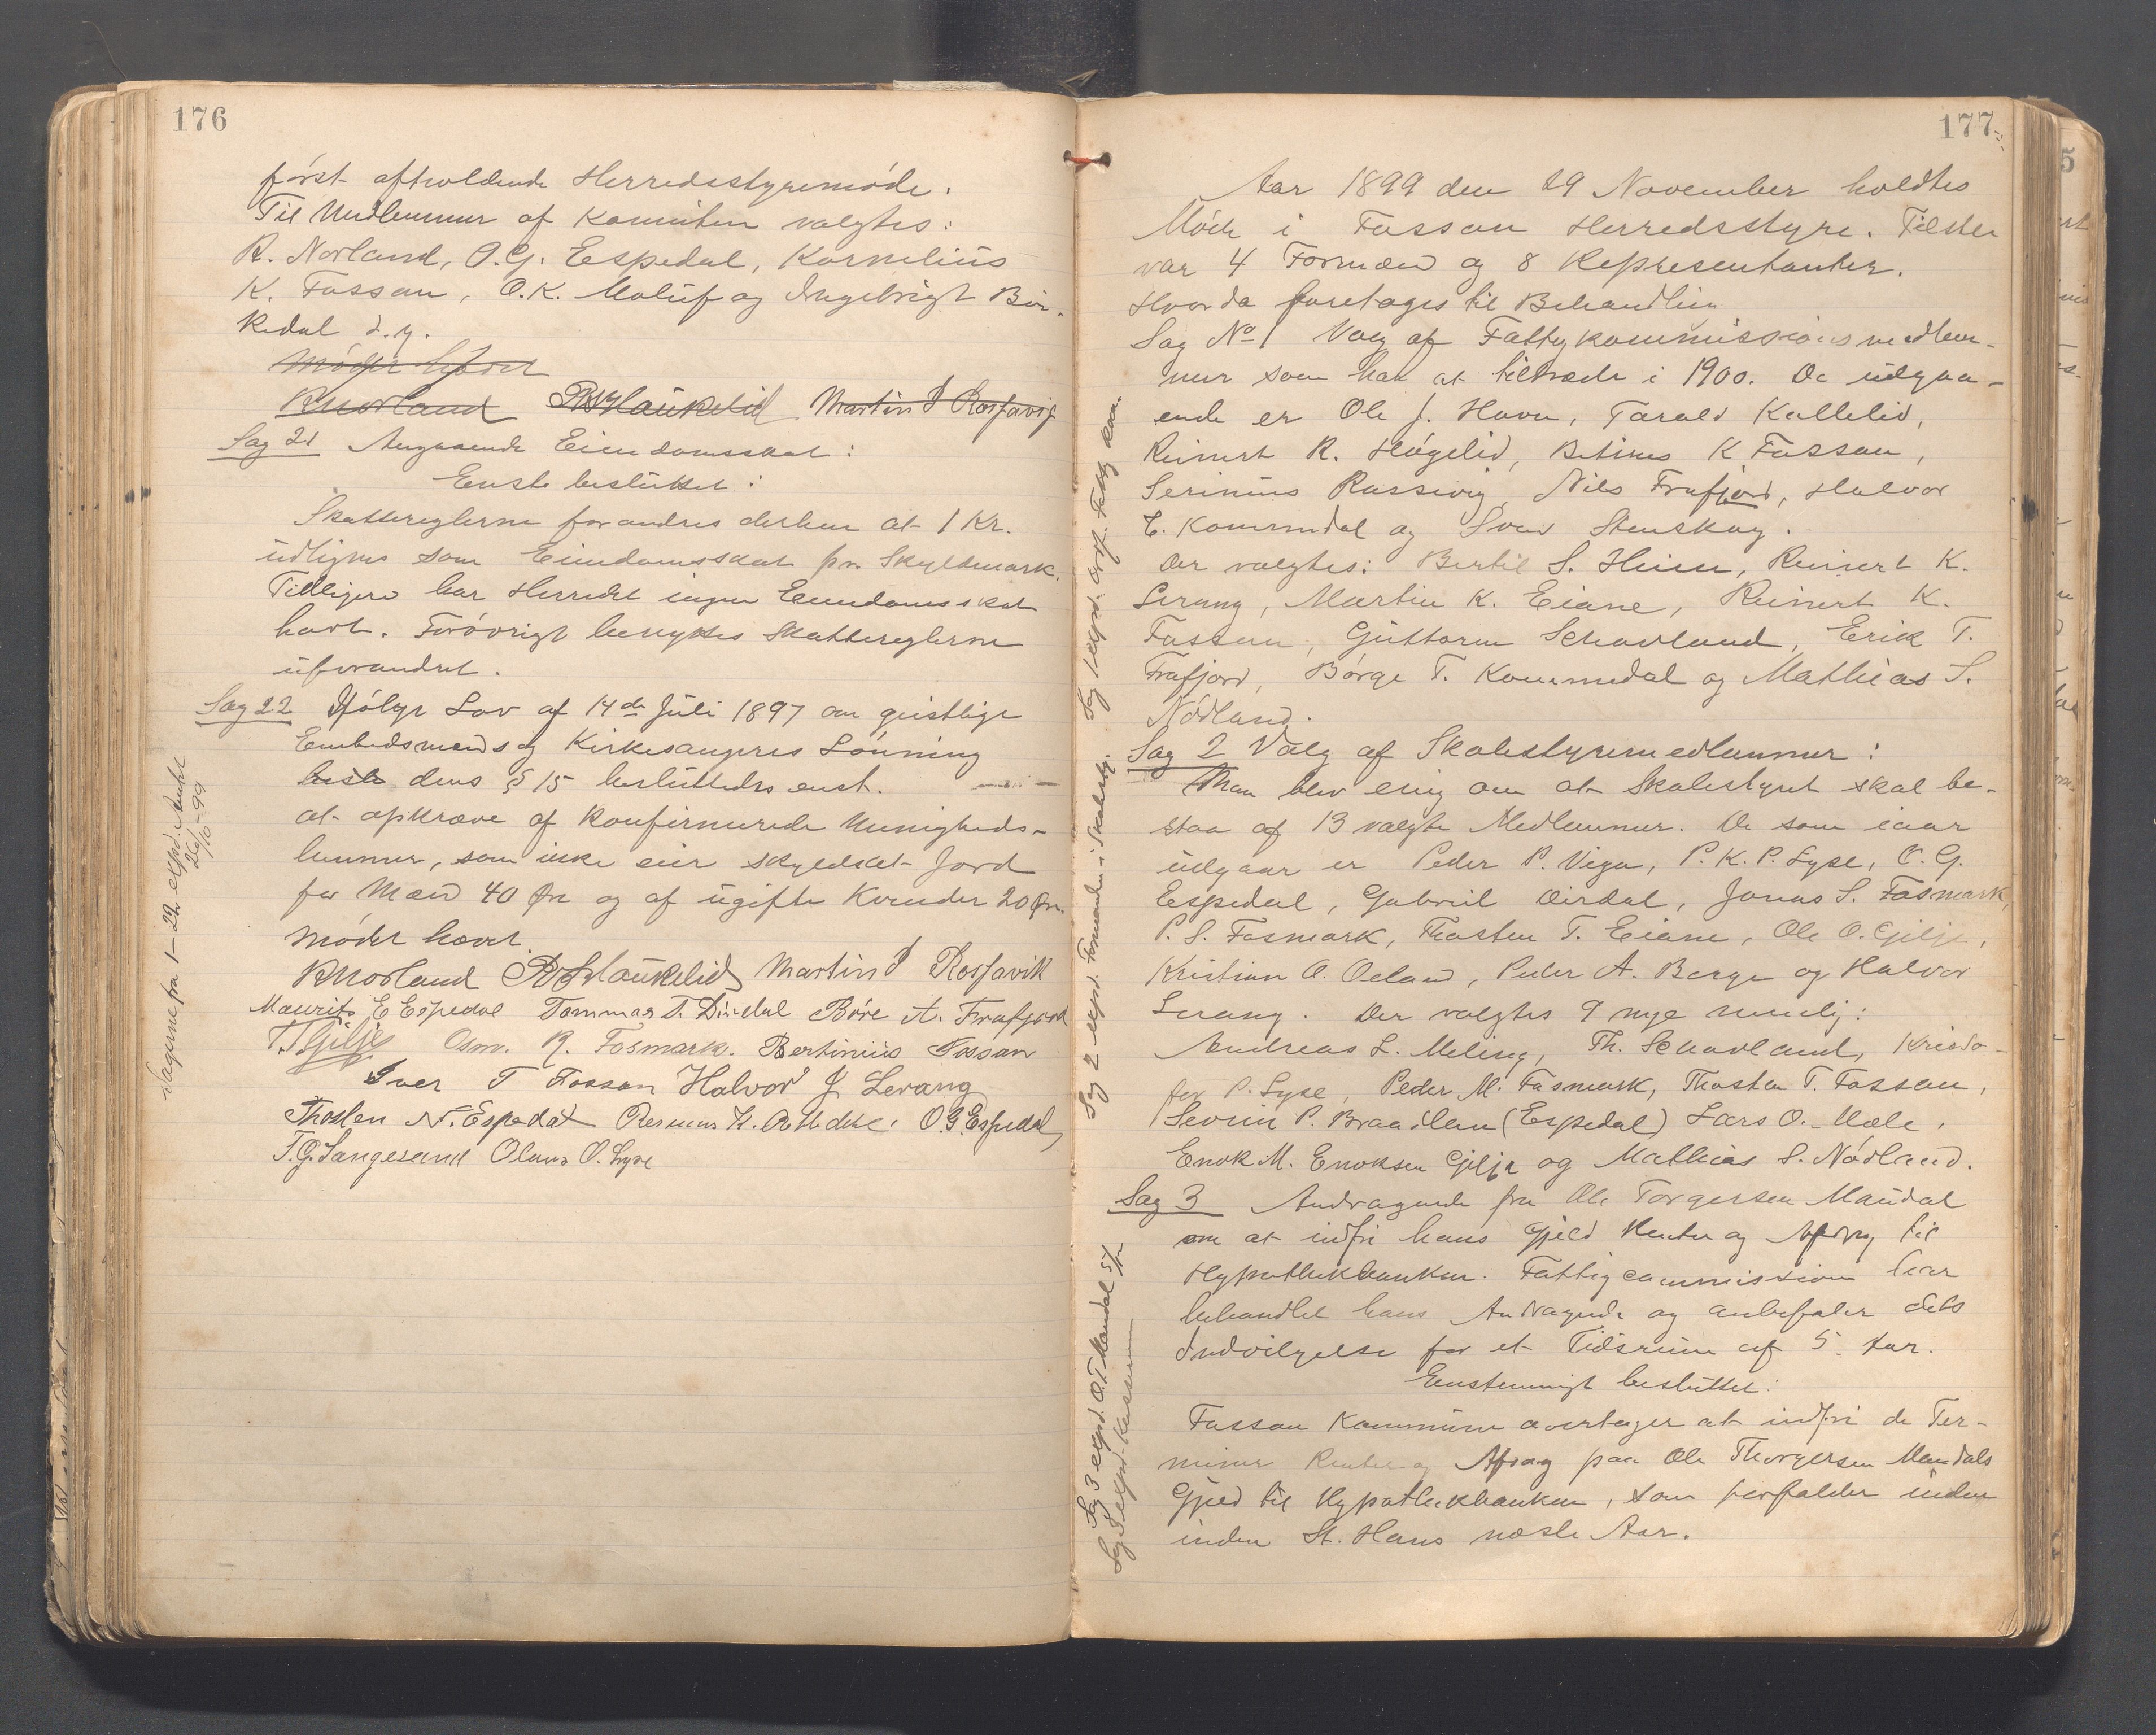 176
først afholdende Herredsstyremøde.
Til Medlemmer af Komiteen valgtes:
R. Norland, O.G. Espedal, Kornelius
K. Fossan, O.K. Maluf og Ingebrigt Bir-
kedal d.y.
Mødet hævet
R Norland Haukelid Martin I Rosfavig
Sag 21 Angaaende Eiendomsskat:
Enst. besluttet:
Skattereglerne forandres derhen at 1 Kr.
udlignes som Eiendomsskat pr. Skyldmark.
Tidligere har Herredet ingen Eiendomsskat
havt. Forøvrigt benyttes Skattereglerne
uforandret.
Sag 22 Ifølge Lov af 14de Juli 1897 om geistlige
Embedsmænds og Kirkesangeres Lønning
dens § 15 besluttedes enst.
at opkræve af konfirmerede Menigheds-
lemmer, som ikke eier skyldsat Jord
for Mænd 40 Øre og af ugifte Kvinder 20 Øre.
Mødet hævet.
R Norland Haukelid Martin I Rosfavik
Maurits E Espedal Tommas T. Dirdal Børe A. Frafjord
T. T Gilje Osm. R. Fosmark. Bertinius Fossan
Iver T Fossan Halvor J Levang
Thosten N. Espedal Rasmus K. O.G. Espedal,
T.G. Sangesand Olaus O. Lyse
Sagerne fra 1-22 expd. Amtet
26/10-99
177
Aar 1899 den 29 November holdtes
Møde i Fossan Herredsstyre. Tilstede
var 4 Formænd og 8 Repræsentanter.
Hvorda foretoges til Behandling
Sag No 1 Valg af Fattigkommissionsmedlem-
mer som har at tiltræde i 1900. De udgaa-
ende er Ole J. Havn, Tarald Kallelid,
Reinert R. Høgelid, Betinus K Fossan,
Serinius Rossevig, Nils Frafjord, Halvor
E. Kommedal og Svend Stenskog.
Der valgtes: Bertil S. Heien, Reinert K.
Levang, Martin K. Eiane, Reinert K.
Fossan, Guttorm Schavland, Erik T.
Frafjord, Børge T. Kommedal og Mathias S.
Nødland.
Sag 2 Valg af Skolestyremedlemmer:
Man blev enig om at Skolestyret skal be-
staa af 13 valgte Medlemmer. De som iaar
udgaar er Peder P. Viga, P. K. P. Lyse, O. G.
Espedal, Gabriel Dirdal, Jonas S. Fosmark,
P. S. Fosmark, Thosten T. Eiane, Ole O. Gilje,
Kristian O. Oeland, Peder A. Berge og Halvor
Levang. Der valgtes 9 nye nemlig:
Andreas L. Meling, Th. Schavland, Kristo-
fer P. Lyse, Peder M. Fosmark, Thosten T. Fossan,
Sevrin P. Braadlan (Espedal) Lars O. Mæle,
Enok M. Enoksen Gilje og Mathias S. Nødland.
Sag 3 Andragende fra Ole Torgersen Maudal
om at indfri hans Gjeld Renter og Afdrag til
Hypothekbanken. Fattigcommission har
behandlet hans Andragende og anbefaler dets
Indvilgelse for et Tidsrum af 5 Aar.
Eenstemmigt besluttet:
Fossan Kommune overtager at indfri de Ter-
miner Renter og Afdrag paa Ole Thorgersen Maudals
Gjeld til Hypothekbanken, som forfalder inden
inden St. Hans næste Aar.
Sag 1 expd. Fattigkom.
Sag 2 expd. Formanden i Skolesty.
Sag 3 expd. O.T. Maudal
Sag 3 expd. Kassereren